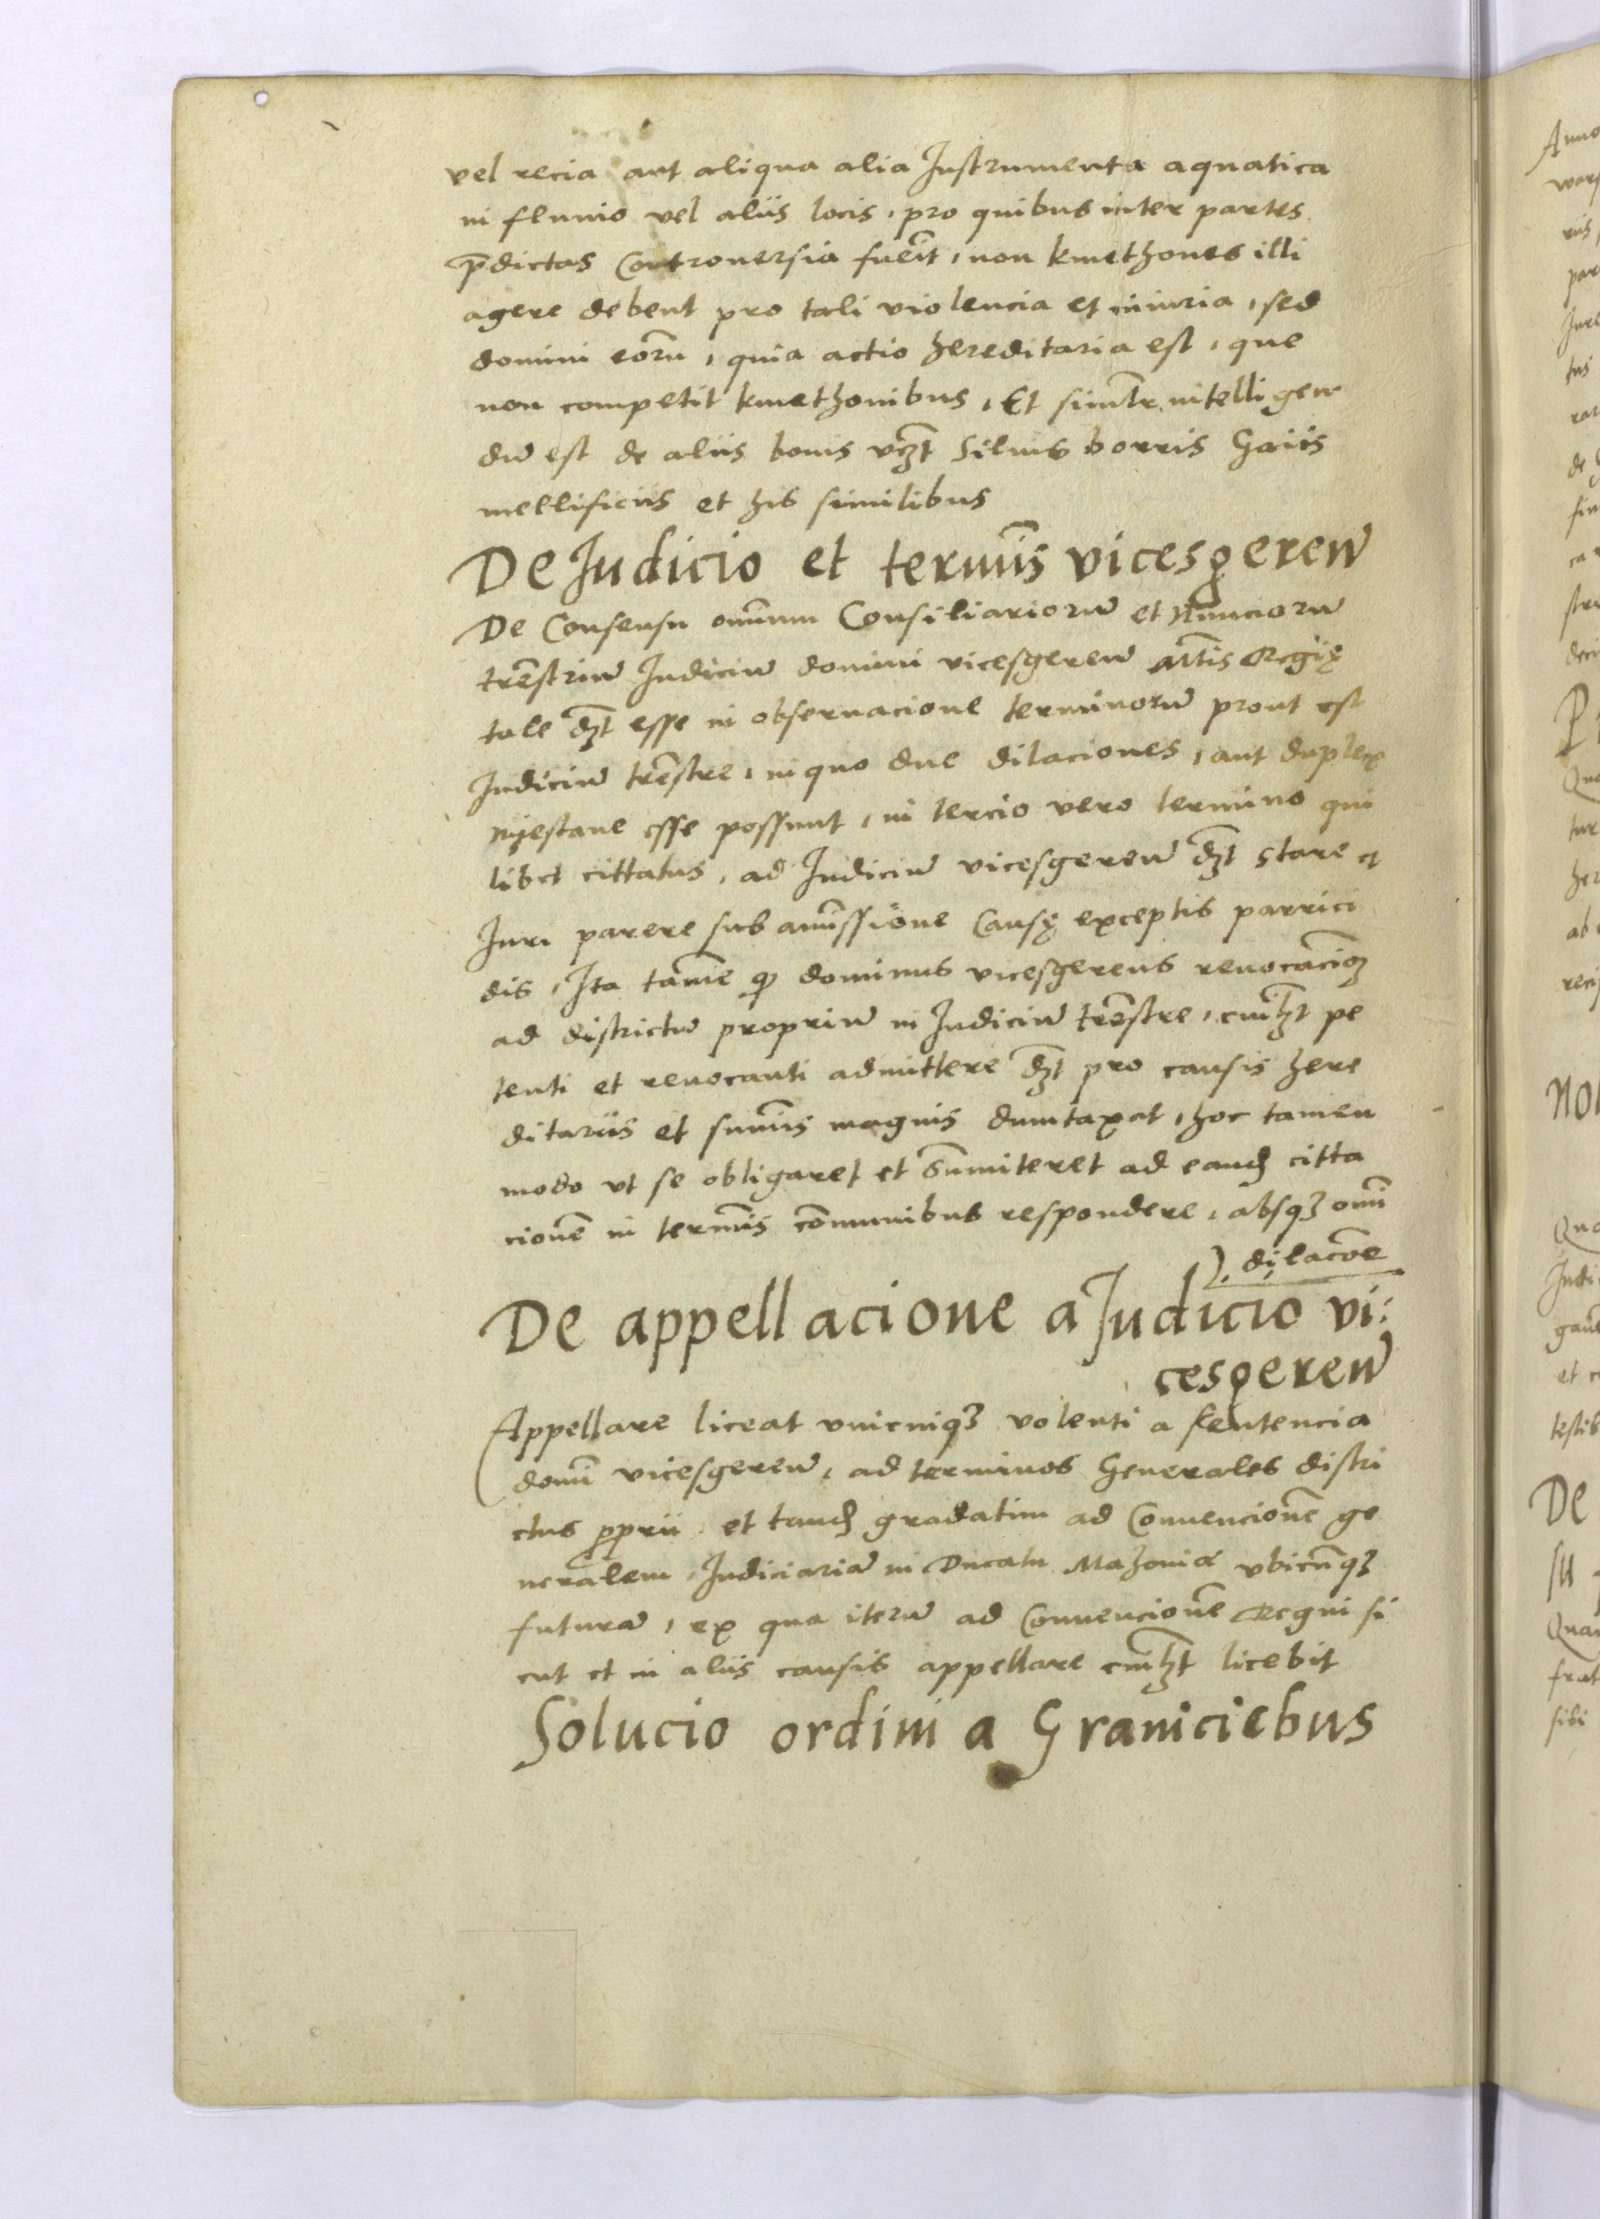 vel recia aut aliqua alia Instrumenta aquatica
in fluuio vel aliis locis, pro quibus inter partes
p̄dictas Controuersia fuerit, non kmethones illi
agere debent pro tali violencia et iniuria, sed
domini eor̄u, quia actio hereditaria est, que
non competit kmethonibus, Et simil̄r intelligen
dū est de aliis bonis vz̄t Siluis borris Gaiis
mellificiis et his similibus
De Iudicio et termīs vicesgeren̄
De Consensu omnium Consiliariorū et Nunciorū
tr̄estriū Iudiciū domini vicesgeren̄ M̄tis Regię
tale dz̄t esse in obseruacione terminorū prout est
Iudiciū tr̄estre, in quo due dilaciones, aut duplex
nyestane esse possunt, in tercio vero termino qui
libet cittatus, ad Iudiciū vicesgeren̄ dz̄t stare et
Iuri parere sub amissione Causę exceptis parrici
dis, Ita tamē qp̄ dominus vicesgerens reuocacioēz
ad districtū propriū in Iudiciū tr̄estre, cuilz̄t pe
tenti et reuocanti admittere dz̄t pro causis here
ditariis et summīs magnis dumtaxat, hoc tamen
modo vt se obligaret et summiteret ad eandē citta
cionē in termīs cōmunibus respondere, absqz omī
dilacōe
De appellacione a Iudicio vi:
cesgeren̄
Appellare liceat vnicuiqz volenti a sentencia
domī vicesgeren̄, ad terminos Generales distri
ctus pp̄rii, et tandē gradatim ad Conuencionē ge
neralem, Iudiciariā in Ducatu Mazouiæ vbicūqz
futurā, ex qua iterū ad Conuencionē Regni si
cut et in aliis causis appellare cuilz̄t licebit
Solucio ordini a Graniciebus